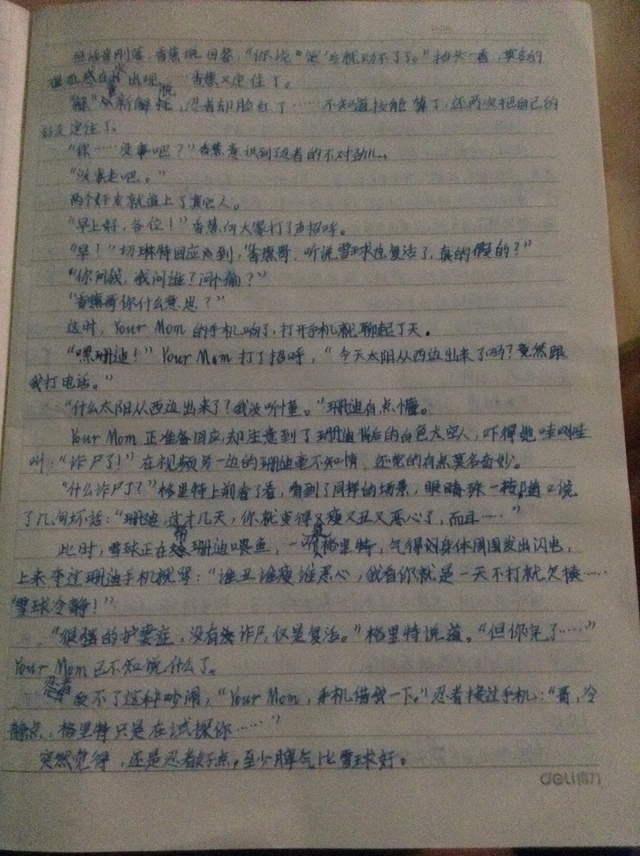 但话音刚落，香蕉就回答，“你说‘受’与就动不了了。”抬头一看，莫名的
出现……香蕉又定住了。
“解”重新解控，忍者却脸红了……不知道技能算了，还两次把自己的
好友定住了。
“你……没事吧？”香蕉意识到忍者的不对劲儿。
“没事走吧。”
两个好友就追上了其他人。
“早上好，各位！”香蕉向大家打了声招呼。
“早！”切琳特回应到，“香蕉哥，听说雪球也复活了，真的假的？”
“你问我，我问谁？问脑？”
“香蕉哥你什么意思？”
这时，Your Mom 的手机响了，打开手机就聊起了天。
“嘿珊迪！”Your Mom 打了招呼，“今天太阳从西边出来了吗？竟然跟
我打电话。”
“什么太阳从西边出来了？我没听懂。”珊迪有点懵。
Your Mom 正准备回应，却注意到了珊迪背后的白色太空人，吓得她哇哇哇
叫：“诈尸了！”在视频另一边的珊迪毫不知情，还觉的有点莫名奇妙。
“什么诈尸了？”格里特上前看了看，看到了同样的场景，眼睛珠一转，随口说
了几句坏话：“珊迪，这才几天，你就变得又瘦又丑又恶心了，而且……”
此时，雪球正在帮珊迪喂鱼，一见格里特，气得对身体周围发出闪电，
上来夺过珊迪手机就骂：“谁丑谁瘦谁恶心，我看你就是一天不打就欠揍……
“雪球冷静！”
“很强的护妻症，没有诈尸，仅是复活。”格里特说道。“但你完了……”
Your Mom 已不知说什么了。
忍者受不了这种吵闹，“Your Mom，手机借我一下。”忍者接过手机：“哥，冷
静点，格里特只是在试探你……”
突然觉得，还是忍者好点，至少脾气比雪球好。
deli得力